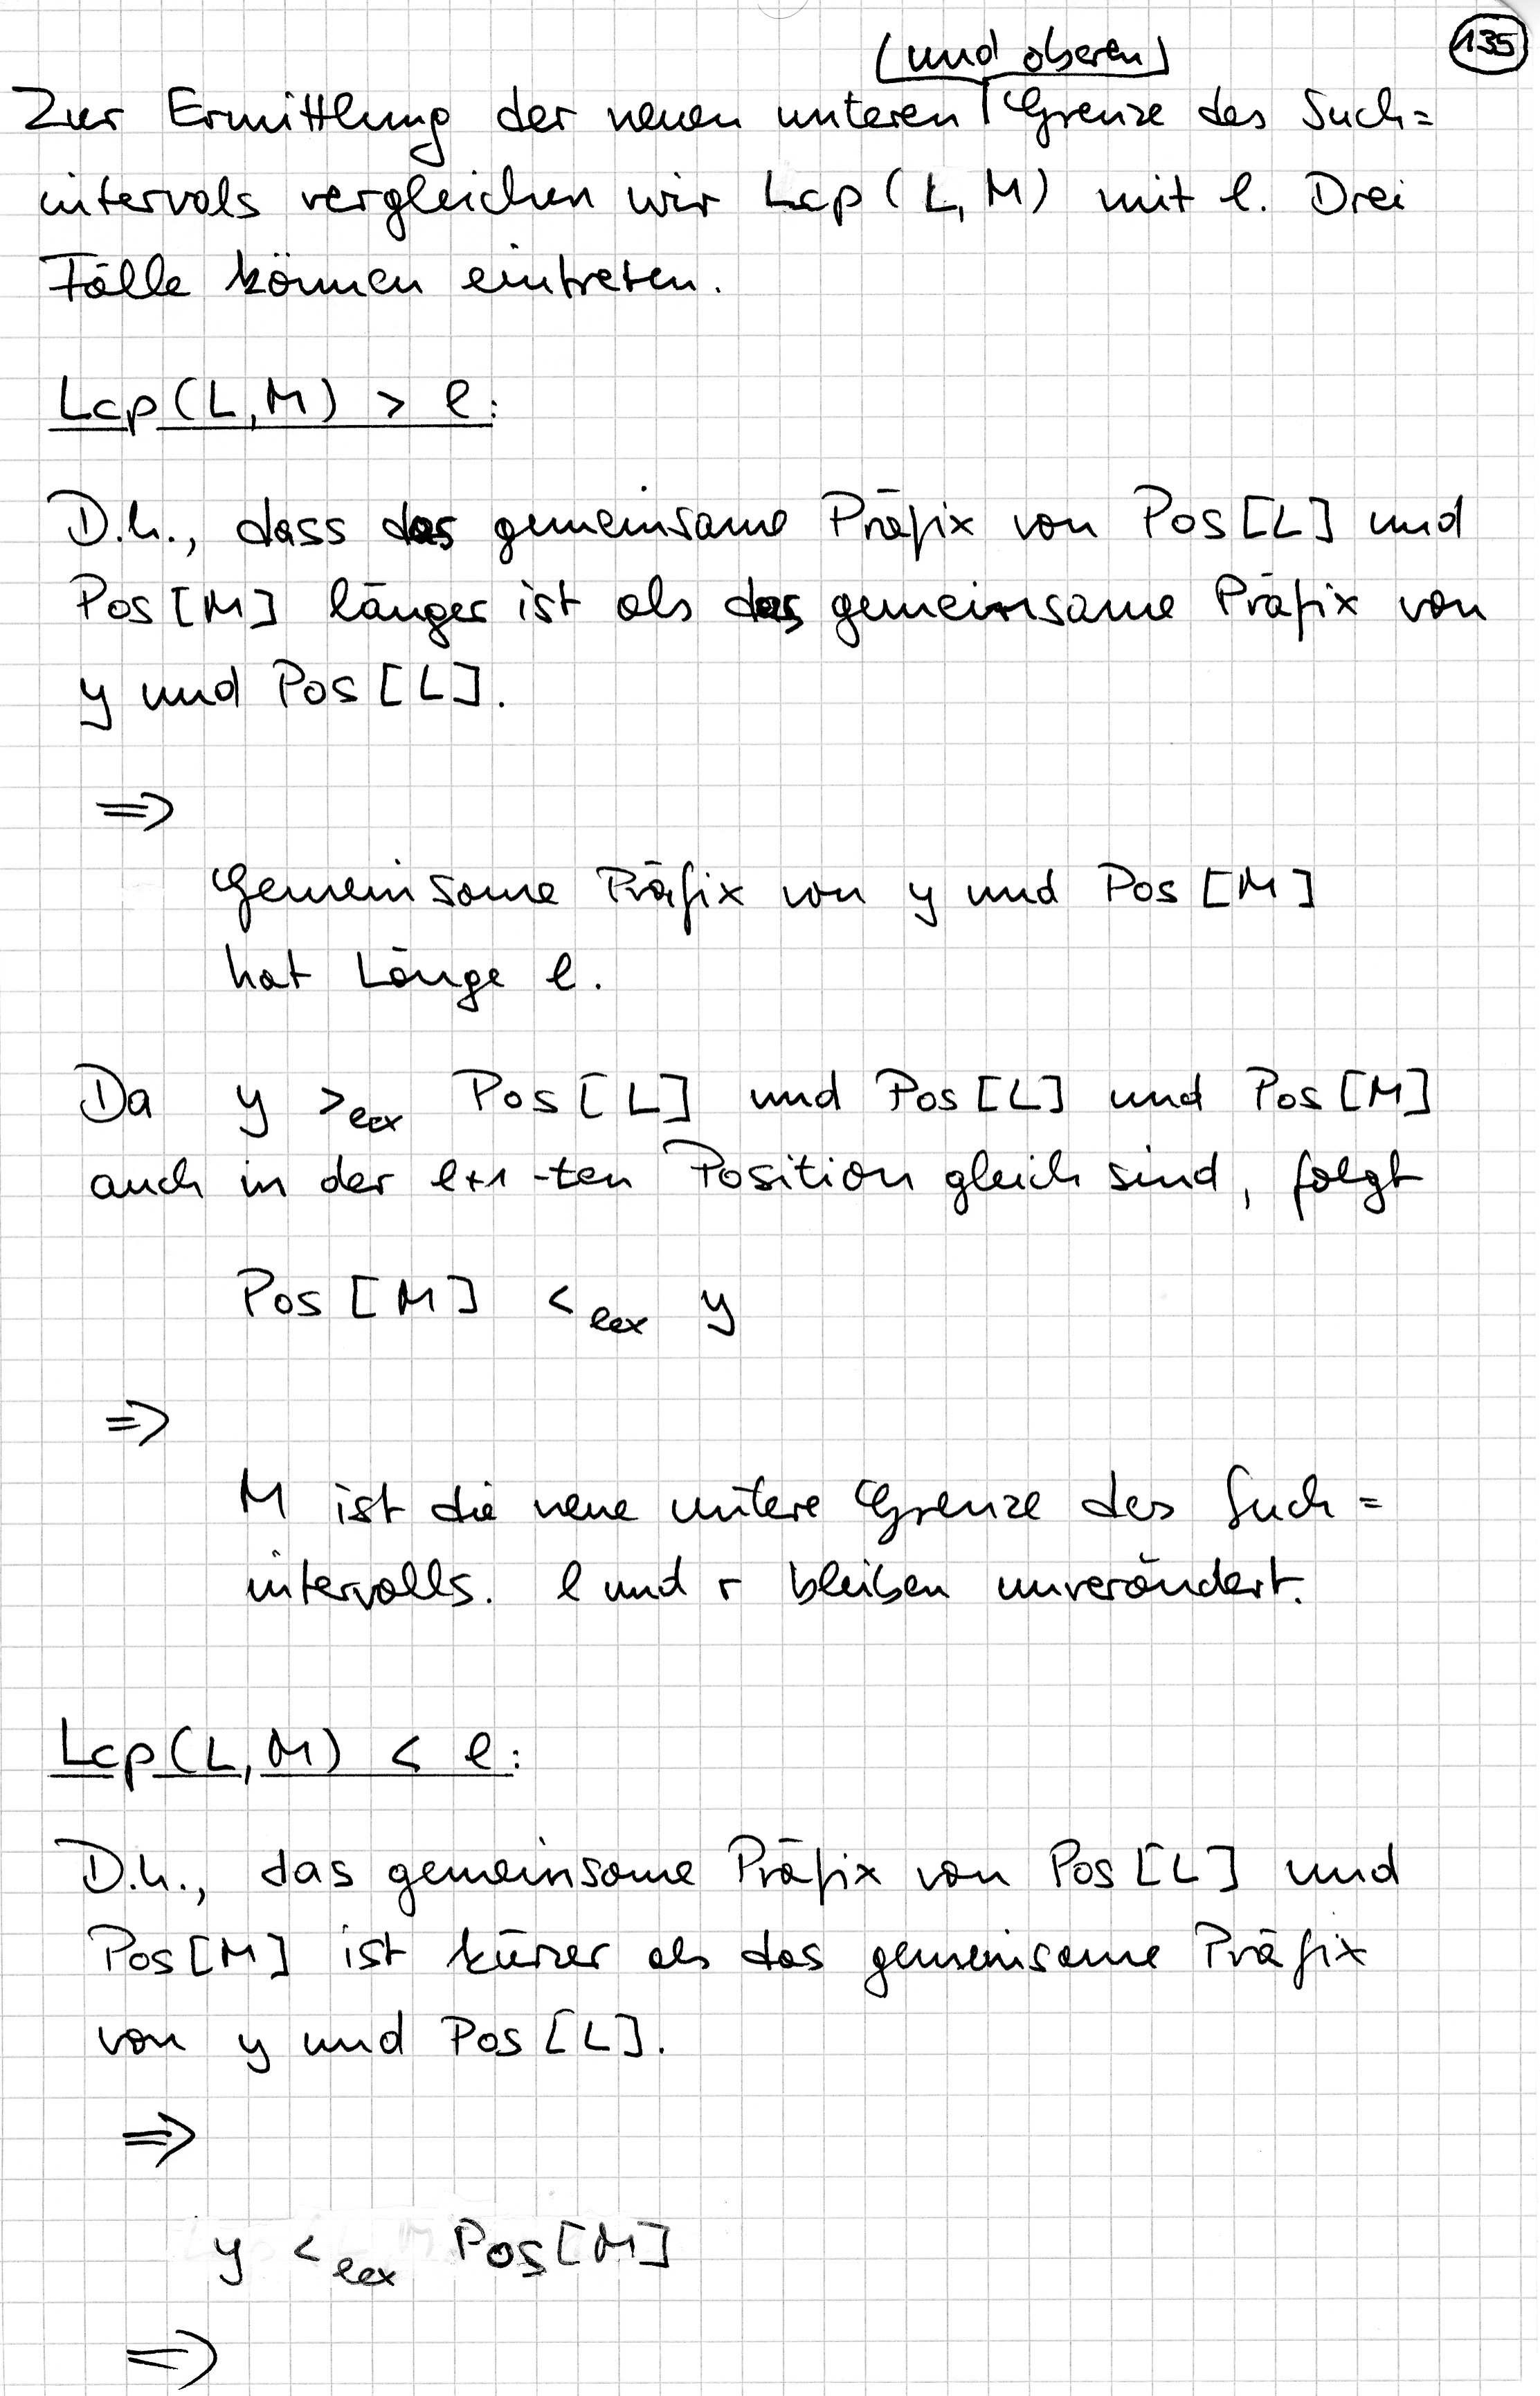 135
(und oberen)
Zur Ermittlung der neuen unteren Grenze des Such=
intervals vergleichen wir Lcp(L,M) mit l. Drei
Fälle können eintreten.
Lcp(L,M) > l:
D.h., dass das gemeinsame Präfix von Pos[L] und
Pos[M] länger ist als das gemeinsame Präfix von
y und Pos[L].
=>
Gemeinsame Präfix von y und Pos[M]
hat Länge l.
Da y >lex Pos[L] und Pos[L] und Pos[M]
auch in der l+1-ten Position gleich sind, folgt
Pos[M] <lex y
=>
M ist die neue untere Grenze des Such=
intervalls. l und r bleiben unverändert.
Lcp(L,M) < l:
D.h., das gemeinsame Präfix von Pos[L] und
Pos[M] ist kürzer als das gemeinsame Präfix
von y und Pos[L].
=>
y <lex Pos[M]
=>